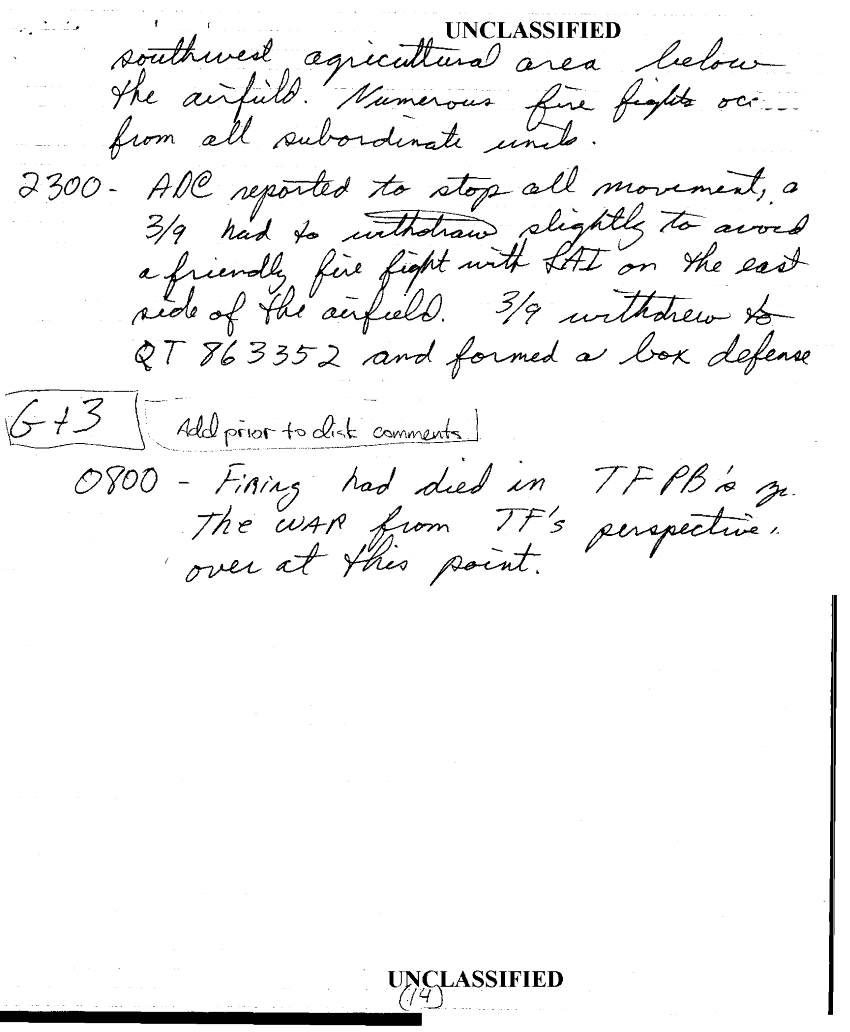 UNCLASSIFIED
southwest agricultural area below
the airfield. Numerous fire fights
from all subordinate units.
2300 - ADC reported to stop all movement, a
3/9 had to withdraw slightly to avoid
a friendly fire fight with LAI on the east
side of the airfield. 3/9 withdrew to
QT 863352 and formed a box defense
G+3
Add prior to disk comments
0800 - Firing had died in TF PB's
The WAR from TF's perspective
over at this point.
UNCLASSIFIED
(14)